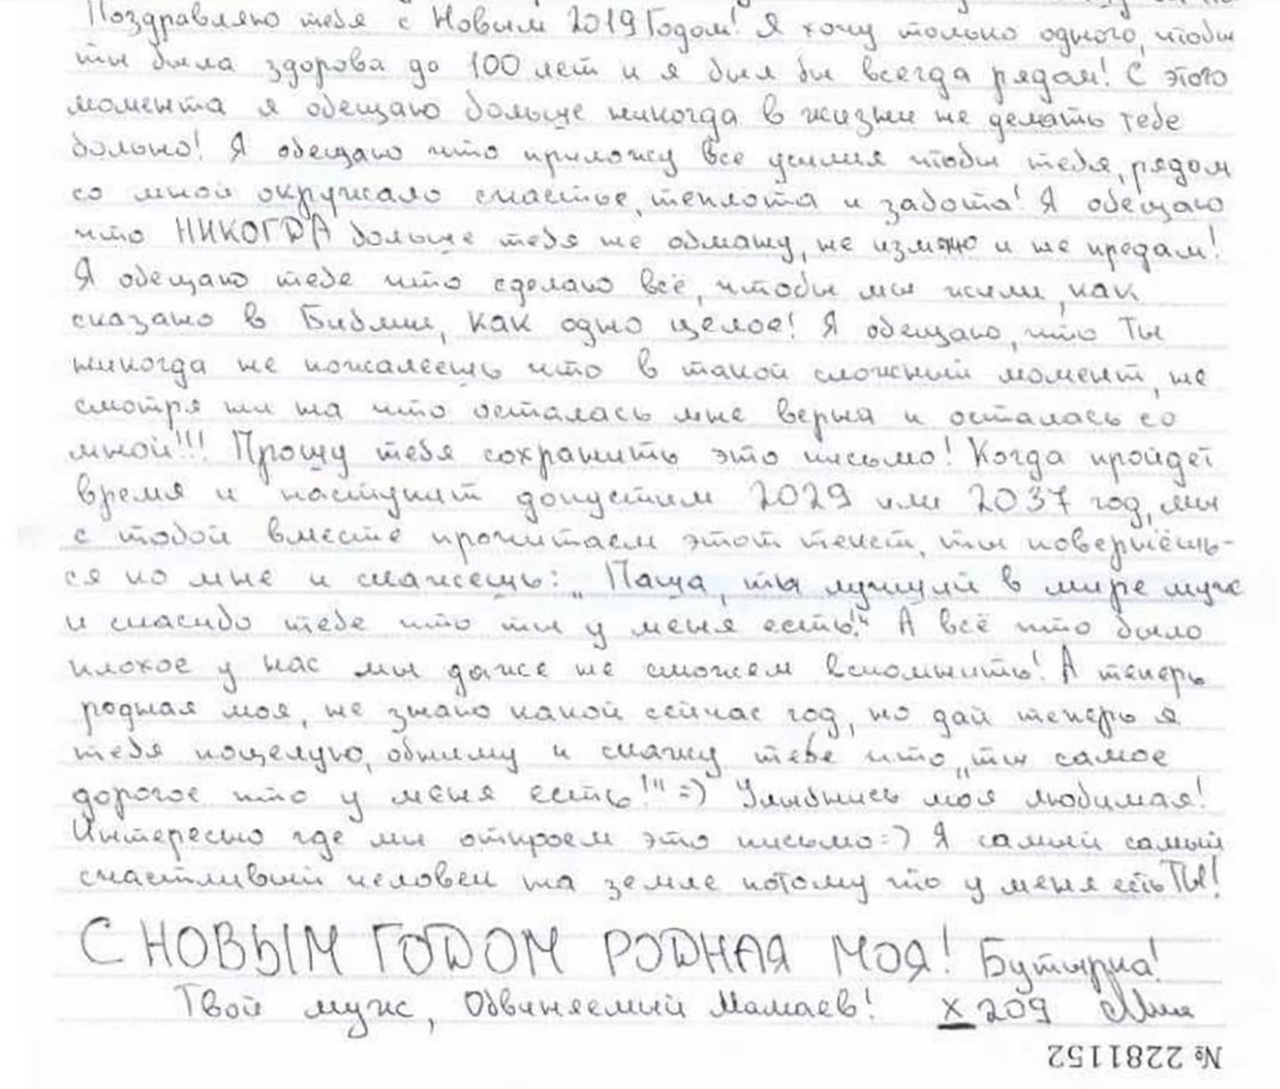 Поздравляю тебя с Новым 2019 Годом! Я хочу только одного, чтобы
ты была здорова до 100 лет и я был бы всегда рядом! С этого
момента я обещаю больше никогда в жизни не делать тебе
больно! Я обещаю что приложу все усилия чтобы тебя, рядом
со мной окружало счастье, теплота и забота! Я обещаю
что НИКОГДА больше тебя не обману, не изменю и не предам!
Я обещаю тебе что сделаю всё, чтобы мы жили, как
сказано в Библии, как одно целое! Я обещаю, что Ты
никогда не пожалеешь что в такой сложный момент, не
смотря ни на что осталась мне верна и осталась со
мной!!! Прошу тебя сохранить это письмо! Когда пройдет
время и наступит допустим 2029 или 2037 год, мы
с тобой вместе прочитаем этот текст, ты повернёшь-
ся ко мне и скажешь: „Паша, ты лучший в мире муж
и спасибо тебе что ты у меня есть!" А всё что было
плохое у нас мы даже не сможем вспомнить! А теперь
родная моя, не знаю какой сейчас год, но дай теперь я
тебя поцелую, обниму и скажу тебе что „ты самое
дорогое что у меня есть!" =) Улыбнись моя любимая!
Интересно где мы откроем это письмо =) Я самый самый
счастливый человек на земле потому что у меня есть ТЫ!
С НОВЫМ ГОДОМ РОДНАЯ МОЯ! Бутырка!
Твой муж, Обвиняемый Мамаев! х 209
№ 2281152